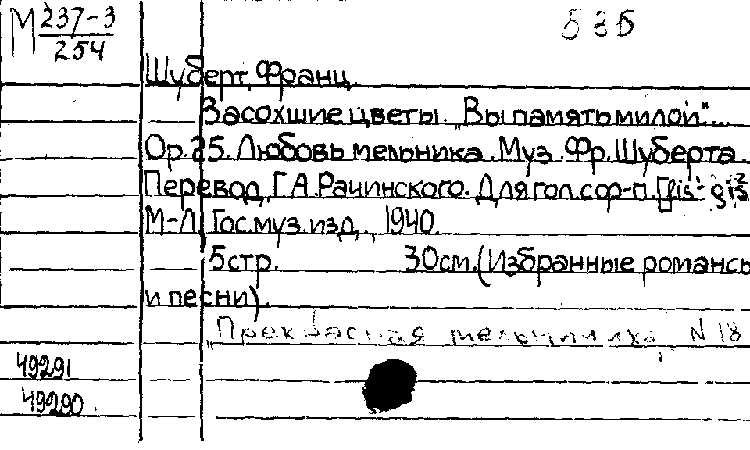 М 237-3
254
535
Шуберт, Франц.
Засохшие цветы. „Вы память милой"...
Op. 25. Любовь мельника. Муз. Фр. Шуберта.
Перевод Г.А. Рачинского. Для гол. сопр-п. [fis¹-gis²
М-Л, Гос. муз. изд., 1940.
5 стр. 30 см. (Избранные романсы
и песни).
„Прекрасная мельничиха", N 18
49291
49290.